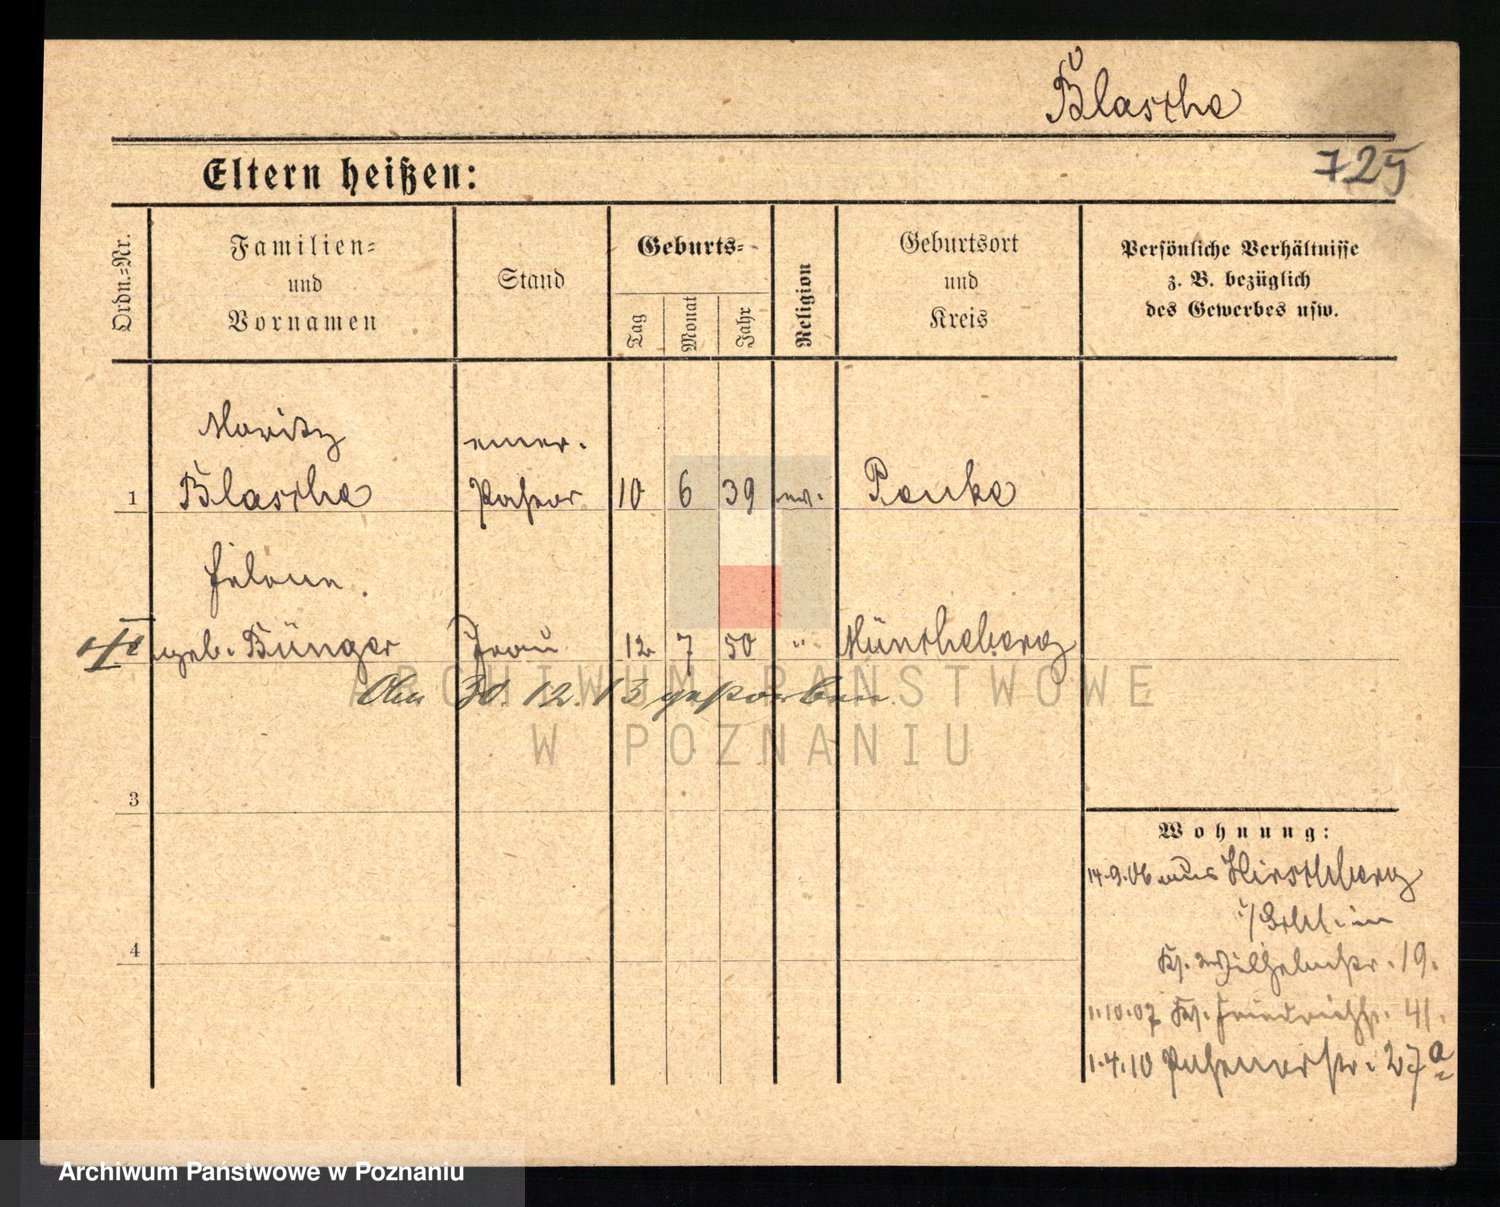 Blaschke
725
Eltern heißen:
Ordn.-Nr.
Familien-
und
Vornamen
Stand
Geburts-
Tag
Monat
Jahr
Religion
Geburtsort
und
Kreis
Persönliche Verhältnisse
z. B. bezüglich
des Gewerbes usw.
Moritz
emer.
1 Blaschke Pastor 10 6 39 ev.
Helene
geb. Bünger Frau 12 7 50 " Müncheberg
Am 30.12.13 gestorben
ARCHIWUM PAŃSTWOWE
W POZNANIU
3
4
Wohnung:
14.9.06 aus Hirschberg
i/Schl. in
Ks. Wilhelmstr. 19.
1.10.07 Ks. Friedrichstr. 41.
1.4.10 Posenerstr. 27a
Archiwum Państwowe w Poznaniu